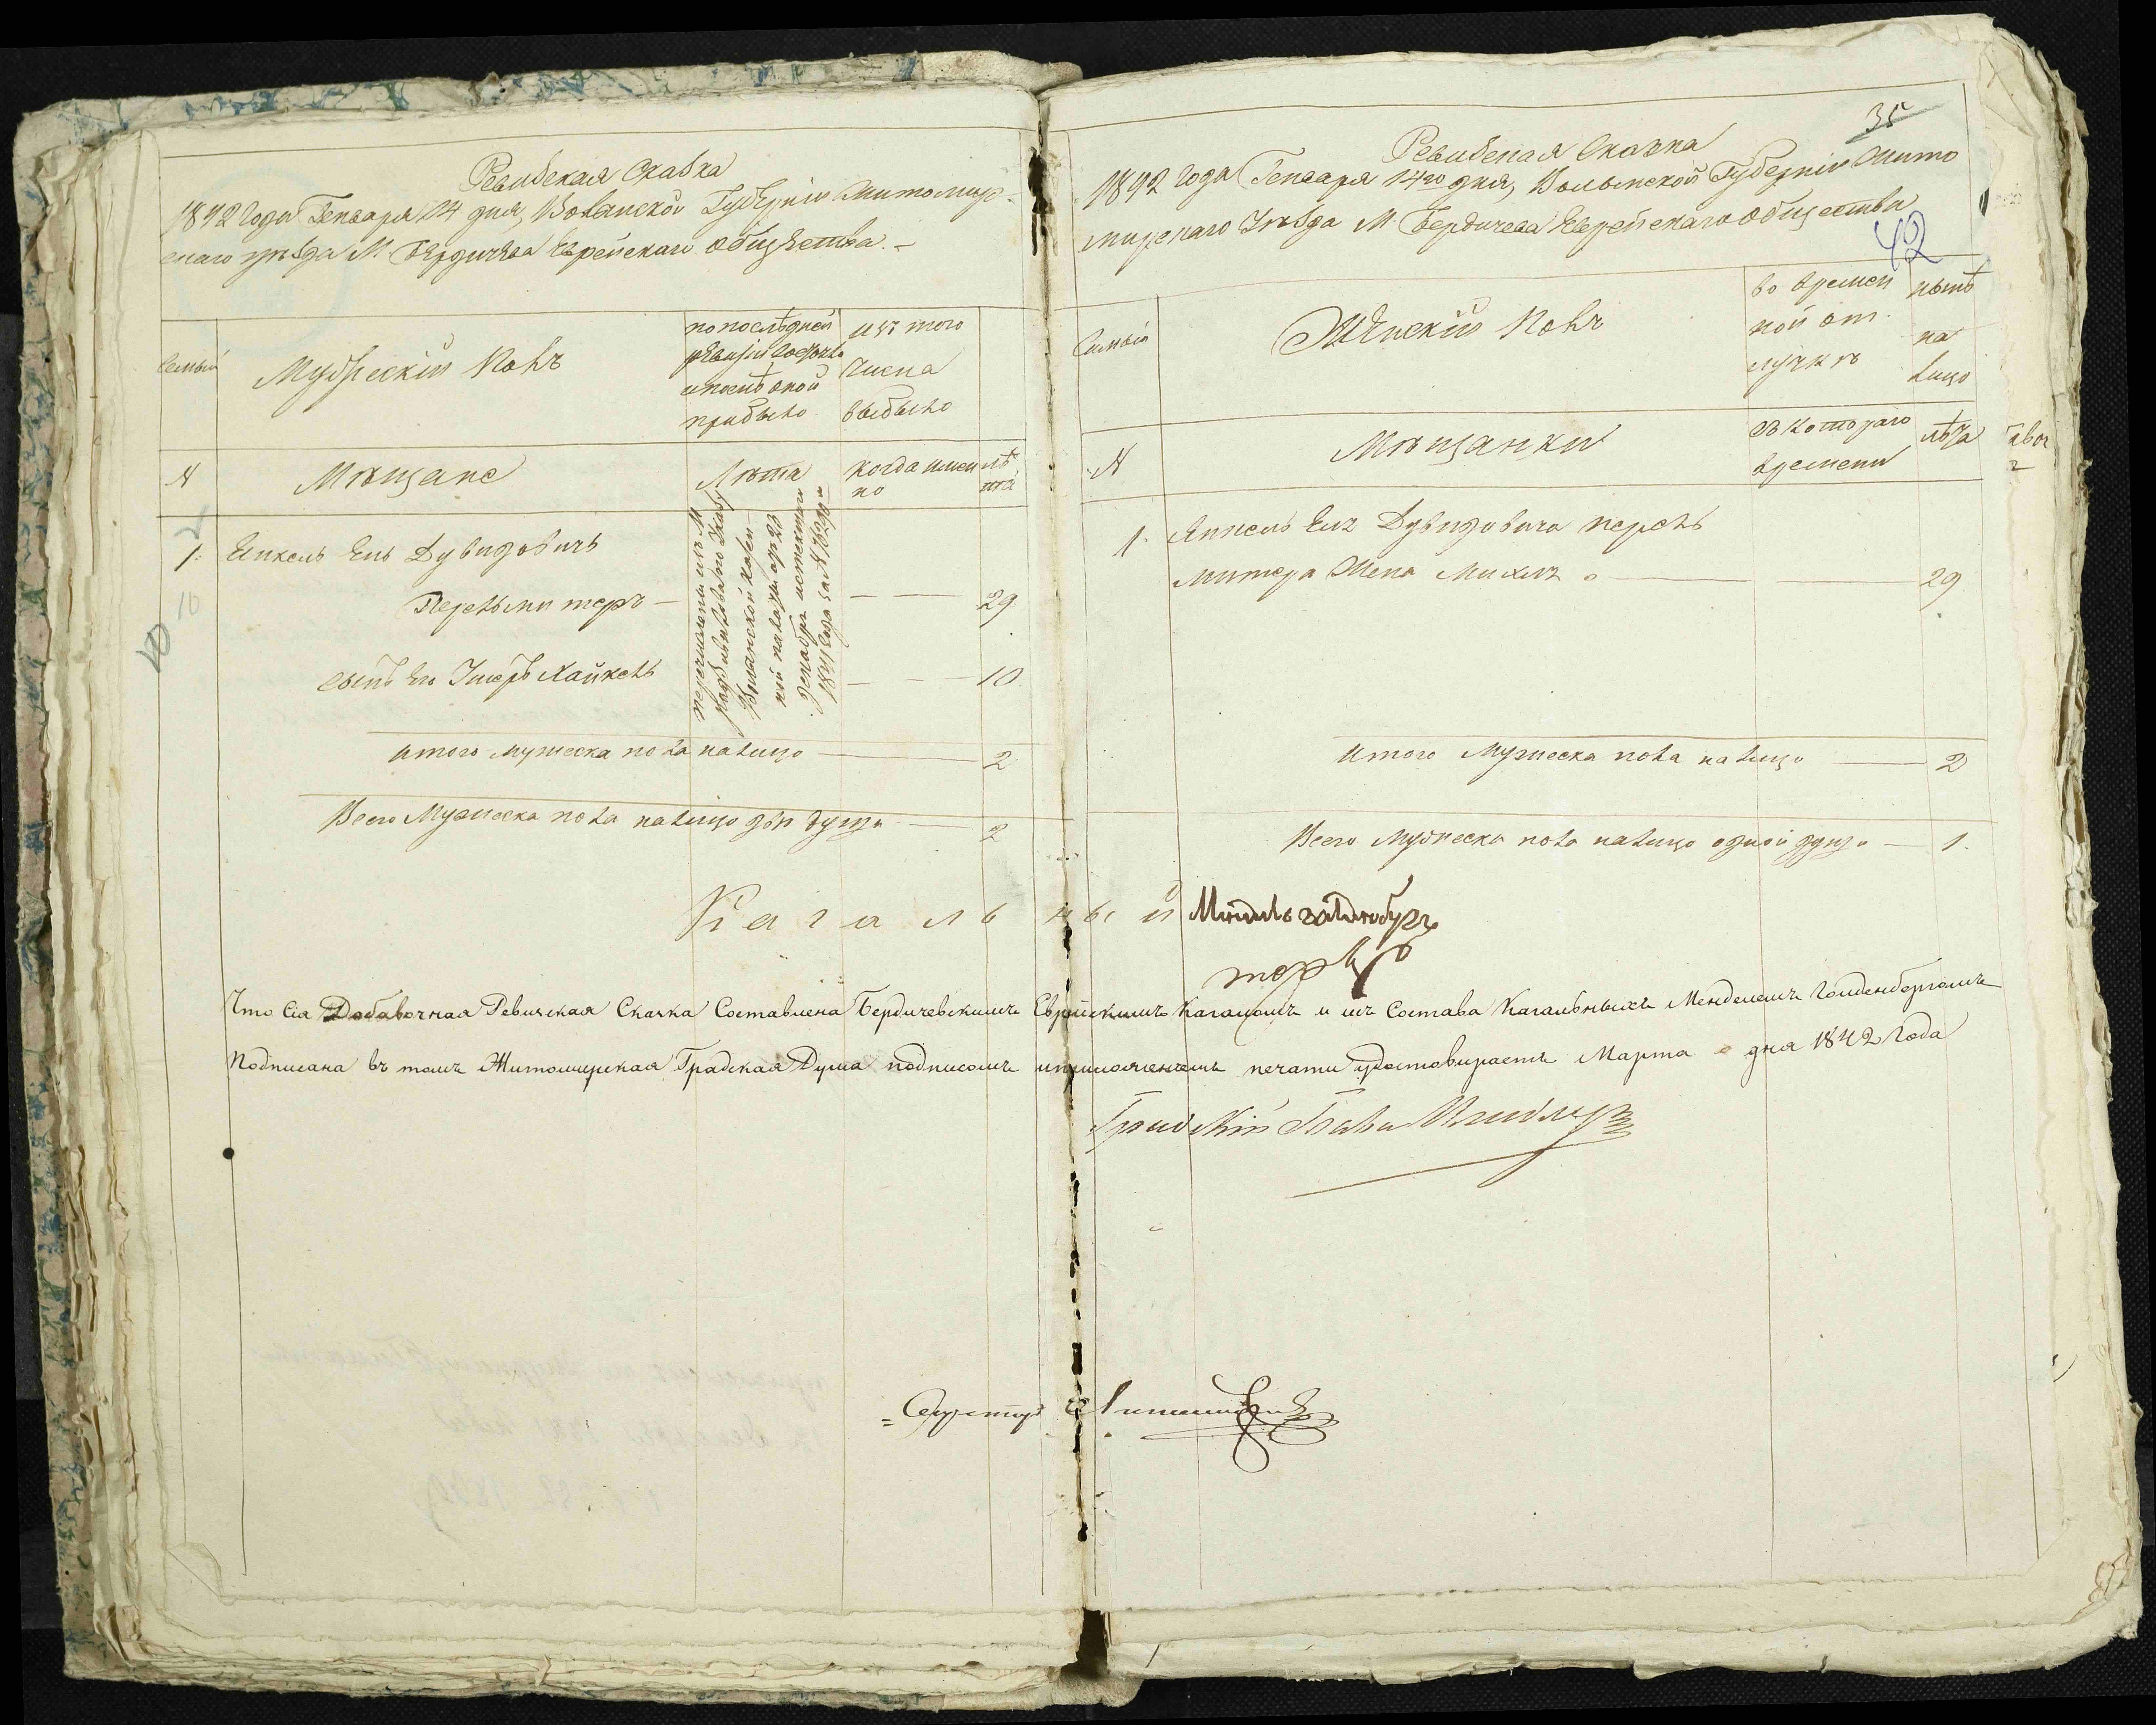 Ревизская Сказка
1842 года Генваря 14 дня, Волынской Губерніи Житомир-
скаго уезда М. Бердичева Еврейскаго общества.
Семьи
Мужескій полъ
по последней
ревизіи состояло
и после оной
прибыло
изъ того
числа
выбыло
N
Мещане
Лета
когда имен
но
ле
та
1.
Янкель Ель Дувидовичъ
Перельмитеръ
29
перечислены изъ М.
Волынской казен
ной палаты от 23
декабря истекшаго
1841 года за N
сынъ его Хайкель
10
итого мужеска пола налицо
2
Всего Мужеска пола налицо две души
2
35
Ревизская Сказка
1842 года Генваря 14го дня, Волынской Губерніи Жито
мирскаго Уезда М. Бердичева Еврейскаго общества
42
Семьи
Женскій полъ
во времен
ной от
лучке
ныне
на
лицо
N
Мещанки
съ котораго
времени
лета
1.
Янкель Ель Дувидовича перель
митера Жена Михля
29
итого Мужеска пола налицо
2
Всего Мужеска пола налицо одной душа
1.
Кагальный
Что Сія Добавочная Ревизская Сказка Составлена Бердичевскимъ Еврейскимъ Кагаломъ и изъ Состава Кагальныхъ Менделемъ Гольденбергомъ
Подписана въ томъ Житомирская Градская Дума подписомъ и приложеніемъ печати удостовираетъ Марта дня 1842 Года
Градскій Глава
Секретарь